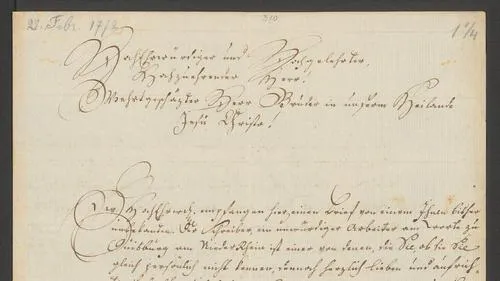 22. Febr. 17
310
1 1/4
HochEhrwürdiger und Hochgelehrter,
Hochzuehrender Herr!
Wehrtgeschäzter Herr Bruder in unserm Heilande
Jesu Christo!
HochEhrw. empfangen hier einen Brief von einem Ihnen bisher
unbekandten. Der Schreiber, ein unwürdiger Arbeiter am Worte zu
Duisburg am NiederRhein ist einer von denen, die Sie, ob sie Sie
gleich persönlich nicht kennen, dennoch herzlich lieben und